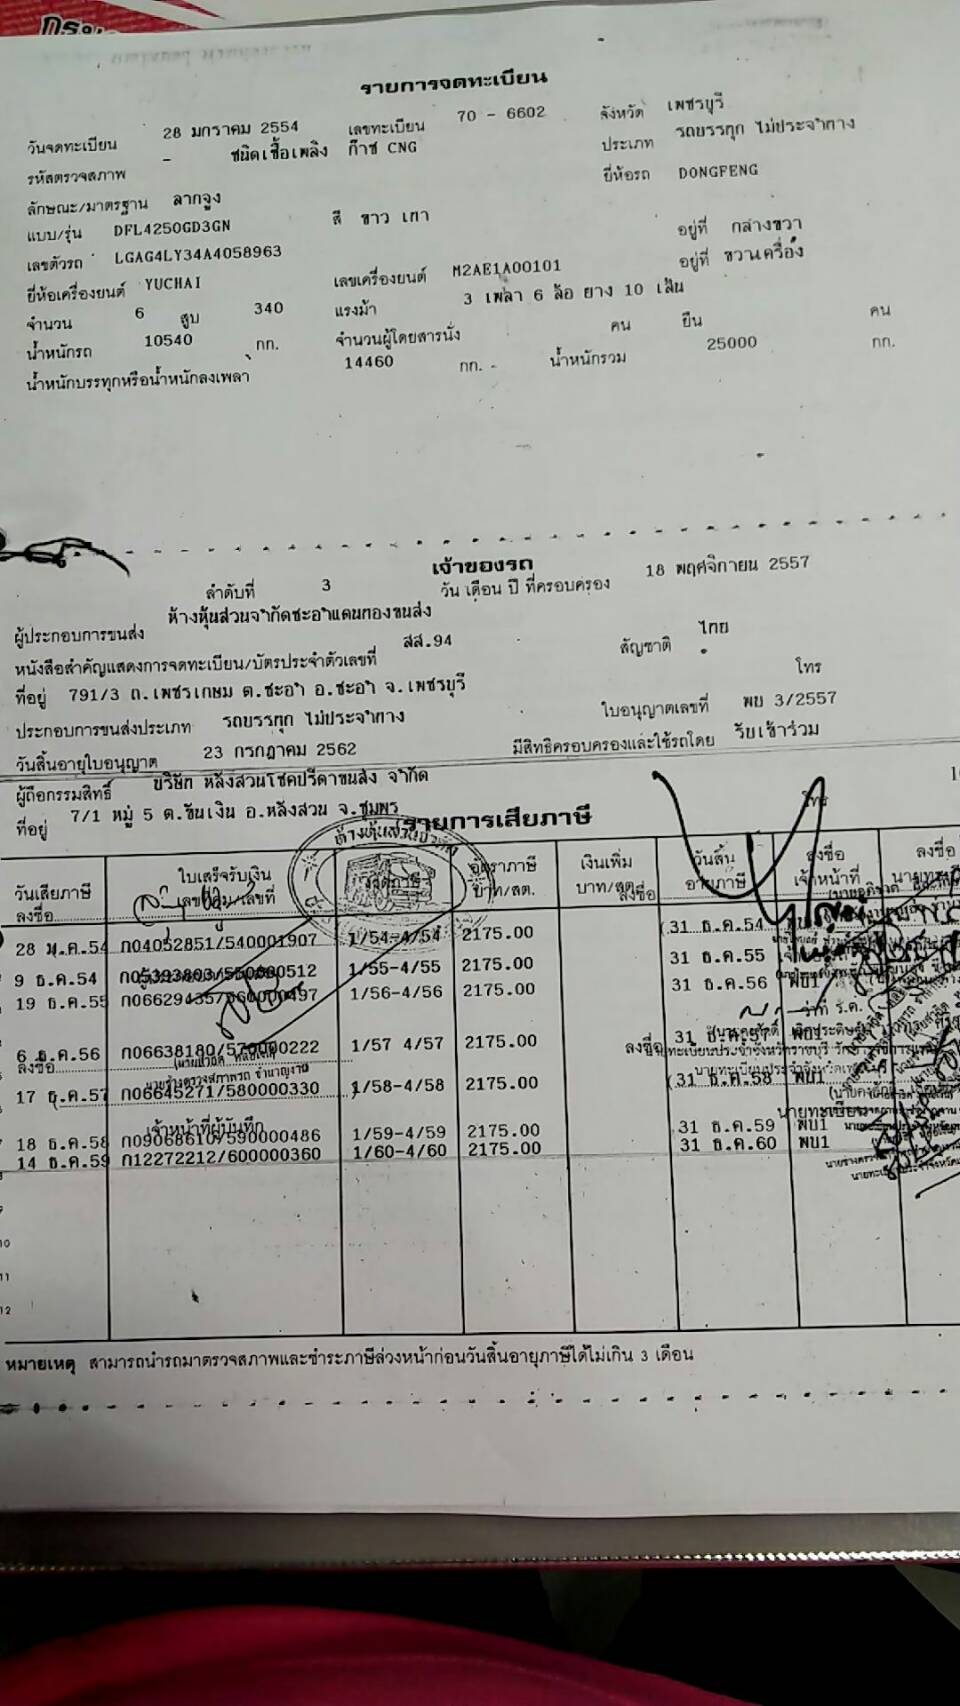 รายการจดทะเบียน
วันจดทะเบียน 28 มกราคม 2554 เลขทะเบียน 70 - 6602 จังหวัด เพชรบุรี
รหัสตรวจสภาพ - ชนิดเชื้อเพลิง ก๊าซ CNG ประเภท รถบรรทุก ไม่ประจำทาง
ลักษณะ/มาตรฐาน ลากจูง ยี่ห้อรถ DONGFENG
แบบ/รุ่น DFL4250GD3GN สี ขาว เทา
เลขตัวรถ LGAG4LY34A4058963 อยู่ที่ กลางขวา
ยี่ห้อเครื่องยนต์ YUCHAI เลขเครื่องยนต์ M2AE1A00101 อยู่ที่ ขวาเครื่อง
จำนวน 6 สูบ 340 แรงม้า 3 เพลา 6 ล้อ ยาง 10 เส้น
น้ำหนักรถ 10540 กก. จำนวนผู้โดยสารนั่ง คน ยืน คน
น้ำหนักบรรทุกหรือน้ำหนักลงเพลา 14460 กก. น้ำหนักรวม 25000 กก.
เจ้าของรถ
ลำดับที่ 3 วัน เดือน ปี ที่ครอบครอง 18 พฤศจิกายน 2557
ผู้ประกอบการขนส่ง ห้างหุ้นส่วนจำกัดชะอำแดนทองขนส่ง
หนังสือสำคัญแสดงการจดทะเบียน/บัตรประจำตัวเลขที่ สส.94 สัญชาติ ไทย
ที่อยู่ 791/3 ถ.เพชรเกษม ต.ชะอำ อ.ชะอำ จ.เพชรบุรี โทร
ประกอบการขนส่งประเภท รถบรรทุก ไม่ประจำทาง ใบอนุญาตเลขที่ พบ 3/2557
วันสิ้นอายุใบอนุญาต 23 กรกฎาคม 2562 มีสิทธิครอบครองและใช้รถโดย รับเข้าร่วม
ผู้ถือกรรมสิทธิ์ บริษัท หลังสวนโชคปรีดาขนส่ง จำกัด
ที่อยู่ 7/1 หมู่ 5 ต.ขันเงิน อ.หลังสวน จ.ชุมพร โทร
รายการเสียภาษี
วันเสียภาษี ใบเสร็จรับเงิน เลขที่เล่ม/เลขที่ งวดภาษี อัตราภาษี บาท/สต. เงินเพิ่ม บาท/สต. วันสิ้นอายุภาษี ลงชื่อ เจ้าหน้าที่ ลงชื่อ
28 ม.ค.54 ก04052851/540001907 1/54-4/54 2175.00 31 ธ.ค.54
9 ธ.ค.54 1/55-4/55 2175.00 31 ธ.ค.55
19 ธ.ค.55 1/56-4/56 2175.00 31 ธ.ค.56 พบ1
6 ธ.ค.56 ก06638180/570000222 1/57 4/57 2175.00 31 พบ1
17 ธ.ค.57 ก06645271/580000330 1/58-4/58 2175.00 31 ธ.ค.58 พบ1
เจ้าหน้าที่ผู้บันทึก
18 ธ.ค.58 ก09068610/590000486 1/59-4/59 2175.00 31 ธ.ค.59 พบ1
14 ธ.ค.59 ก12272212/600000360 1/60-4/60 2175.00 31 ธ.ค.60 พบ1
10
11
12
หมายเหตุ สามารถนำรถมาตรวจสภาพและชำระภาษีล่วงหน้าก่อนวันสิ้นอายุภาษีได้ไม่เกิน 3 เดือน